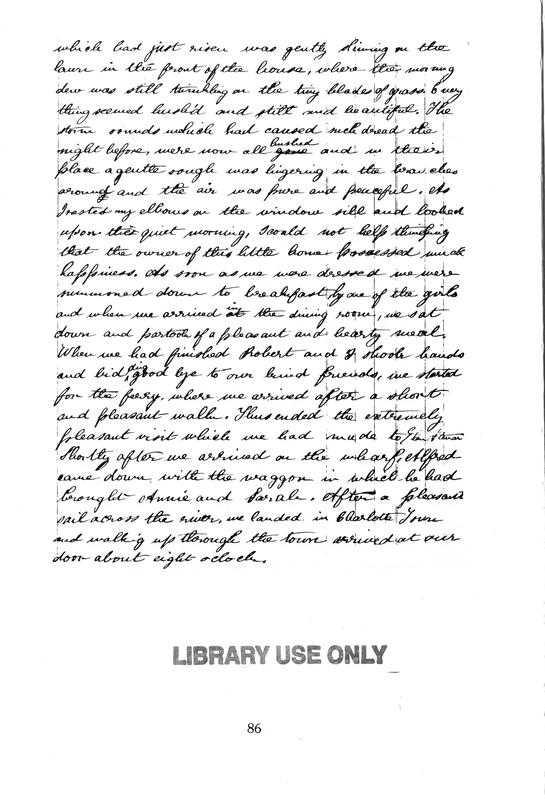 which had just risen was gently shining on the
lawn in the front of the house, where the morning
dew was still twinkling on the tiny blades of grass. Every
thing seemed hush'd and still and beautiful. The
storm sounds which had caused such dread the
night before, were now all hushed gone and in their
place a gentle sough was lingering in the branches
around and the air was pure and peaceful. As
I rested my elbows on the window sill and looked
upon this quiet morning, I could not help thinking
that the owner of this little home possessed much
happiness. As soon as we were dressed we were
summoned down to breakfast by one of the girls
and when we arrived in at the dining room, we sat
down and partook of a pleasant and hearty meal.
When we had finished Robert and I shook hands
and bid good bye to our kind friends, we started
for the ferry, where we arrived after a short
and pleasant walk. Thus ended the extremely
pleasant visit which we had made to
Shortly after we arrived on the wharf, Alfred
came down with the waggon in which he had
brought Annie and Sarah. After a pleasant
sail across the river, we landed in Charlotte Town
and walk-g up through the town arrived at our
door about eight o'clock.
LIBRARY USE ONLY
86